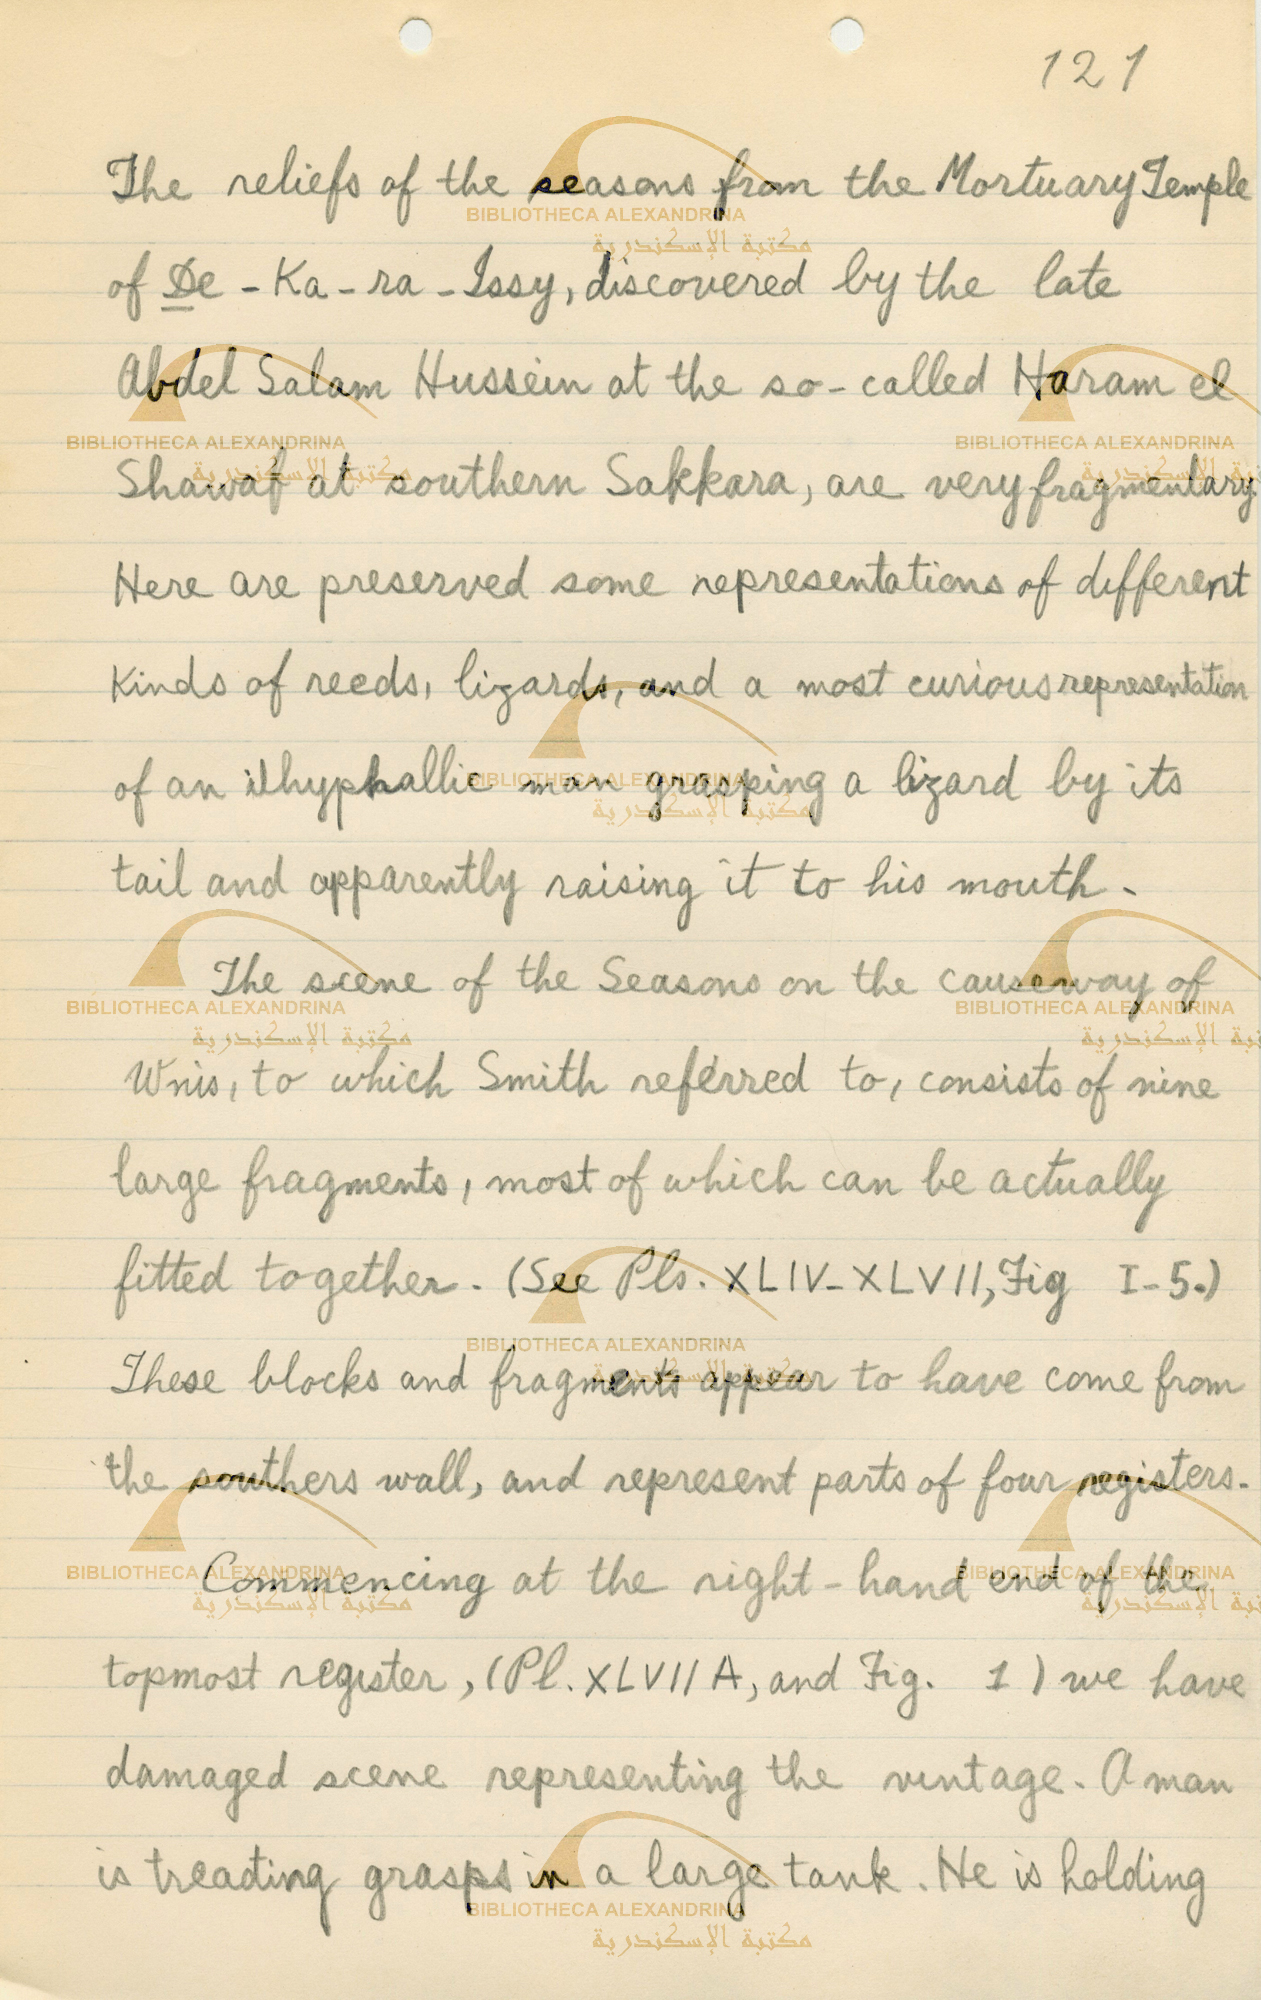 121
The reliefs of the seasons from the Mortuary Temple
of De-Ka-ra-Issy, discovered by the late
Abdel Salam Hussein at the so-called Haram el
Shawaf at southern Sakkara, are very fragmentary.
Here are preserved some representations of different
kinds of reeds, lizards, and a most curious representation
of an ithyphallic man grasping a lizard by its
tail and apparently raising it to his mouth.
The scene of the Seasons on the causeway of
Wnis, to which Smith referred to, consists of nine
large fragments, most of which can be actually
fitted together. (See Pls. XLIV-XLVII, Fig I-5.)
These blocks and fragments appear to have come from
the southers wall, and represent parts of four registers.
Commencing at the right-hand end of the
topmost register, (Pl. XLVII A, and Fig. 1) we have
damaged scene representing the vintage. A man
is treading grasps in a large tank. He is holding
BIBLIOTHECA ALEXANDRINA
مكتبة الإسكندرية